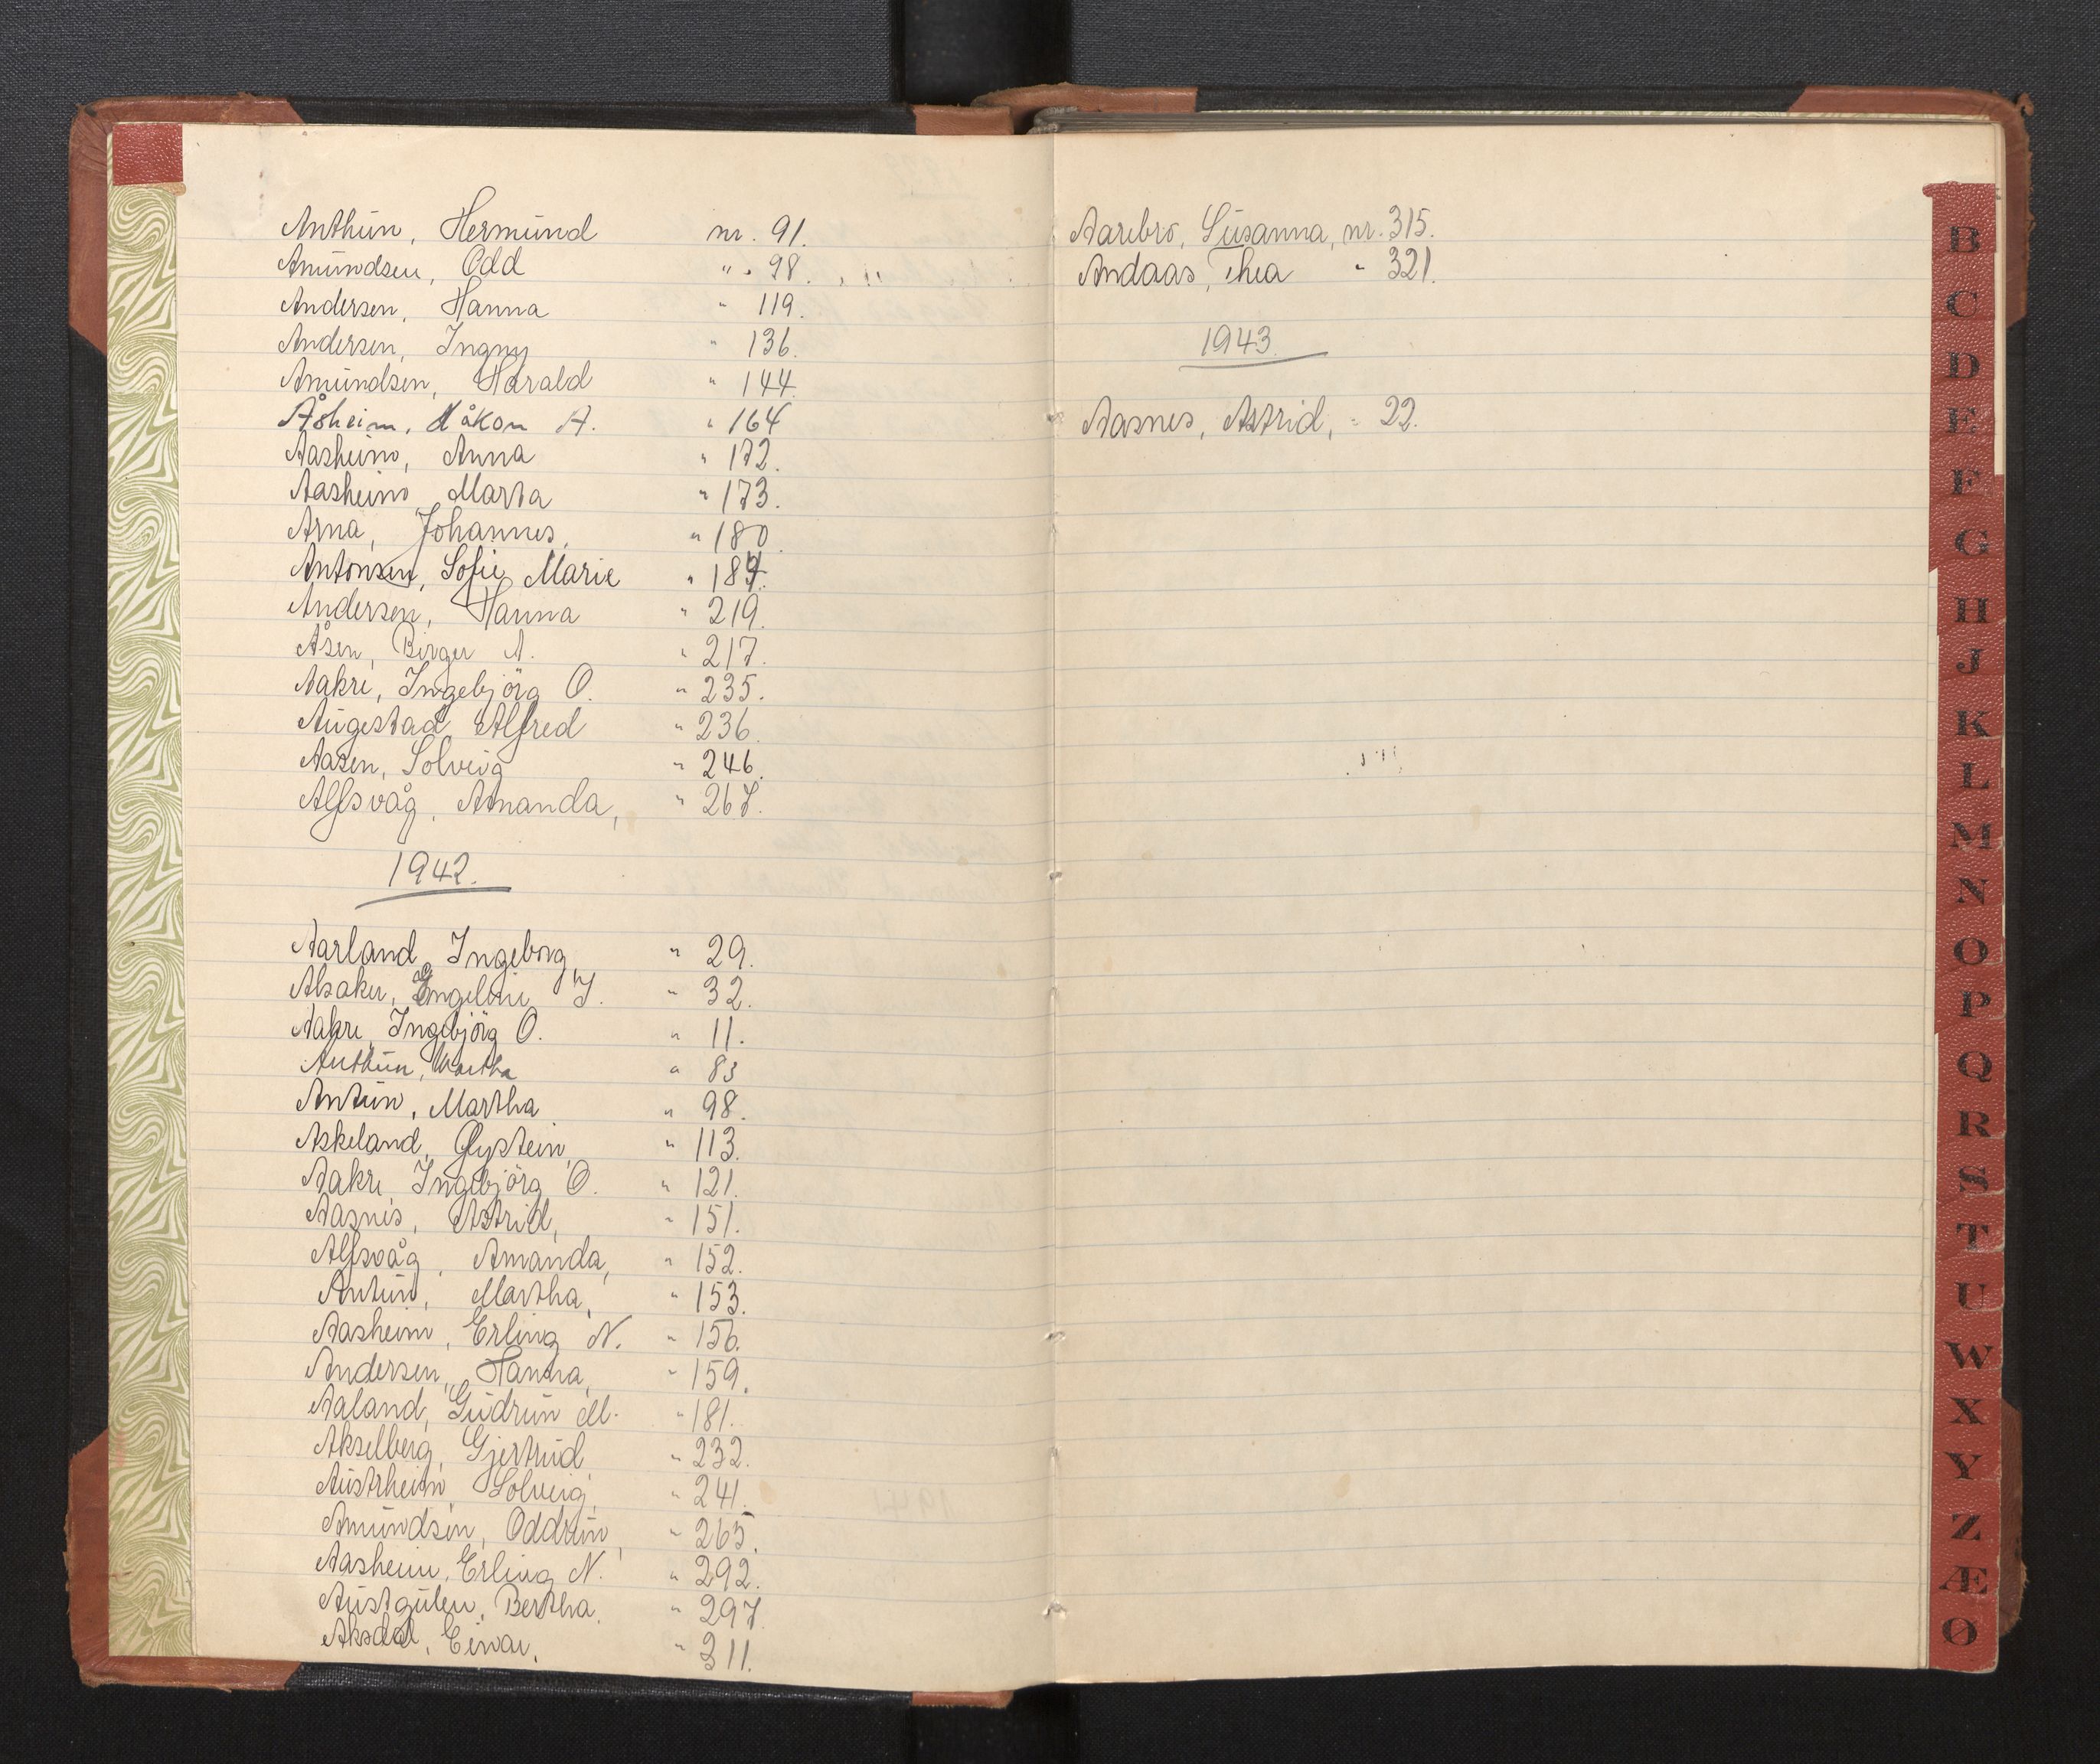 Anthun, Hermund nr. 91.
Amundsen, Odd " . 98.
Andersen, Hanna " 119.
Andersen, Ingny " 136.
Amundsen, Harald " 144.
Åsheim, Håkon A. " 164
Aasheim, Anna " 172.
Aasheim, Marta " 173.
Arna, Johannes, " 180.
Antonsen, Sofie Marie " 187.
Andersen, Hanna " 219.
Åsen, Birger A. " 217.
Aakre, Ingebjörg O. " 235.
Augestad, Alfred " 236.
Aasen, Solveig " 246.
Alfsvåg, Amanda, " 267.
1942.
Aarland, Ingeborg, " 29.
Alsaker, Engeline J. " 32.
Aakre, Ingebjörg O. " 11.
Anthun, Martha " 83
Antun, Martha " 98.
Askeland, Øystein, " 113.
Aakre, Ingebjörg O. " 121.
Aasnes, Astrid, " 151.
Alfsvåg, Amanda, " 152.
Antun, Martha, " 153.
Aasheim, Erling N. " 156.
Andersen, Hanna, " 159.
Aaland, Gudrun M. " 181.
Akselberg, Gjertrud " 232.
Austrheim, Solveig, " 241.
Amundsen, Oddrun, " 265.
Aasheim, Erling N. " 292.
Austgulen, Bertha, " 297.
Aksdal, Einar, " 311.
Aarebro, Susanna, nr. 315.
Andaas, Thea " 321.
1943.
Aasnes, Astrid, " 22.
B
C
D
E
F
G
H
J
K
L
M
N
O
P
Q
R
S
T
U
W
X
Y
Z
Æ
Ø